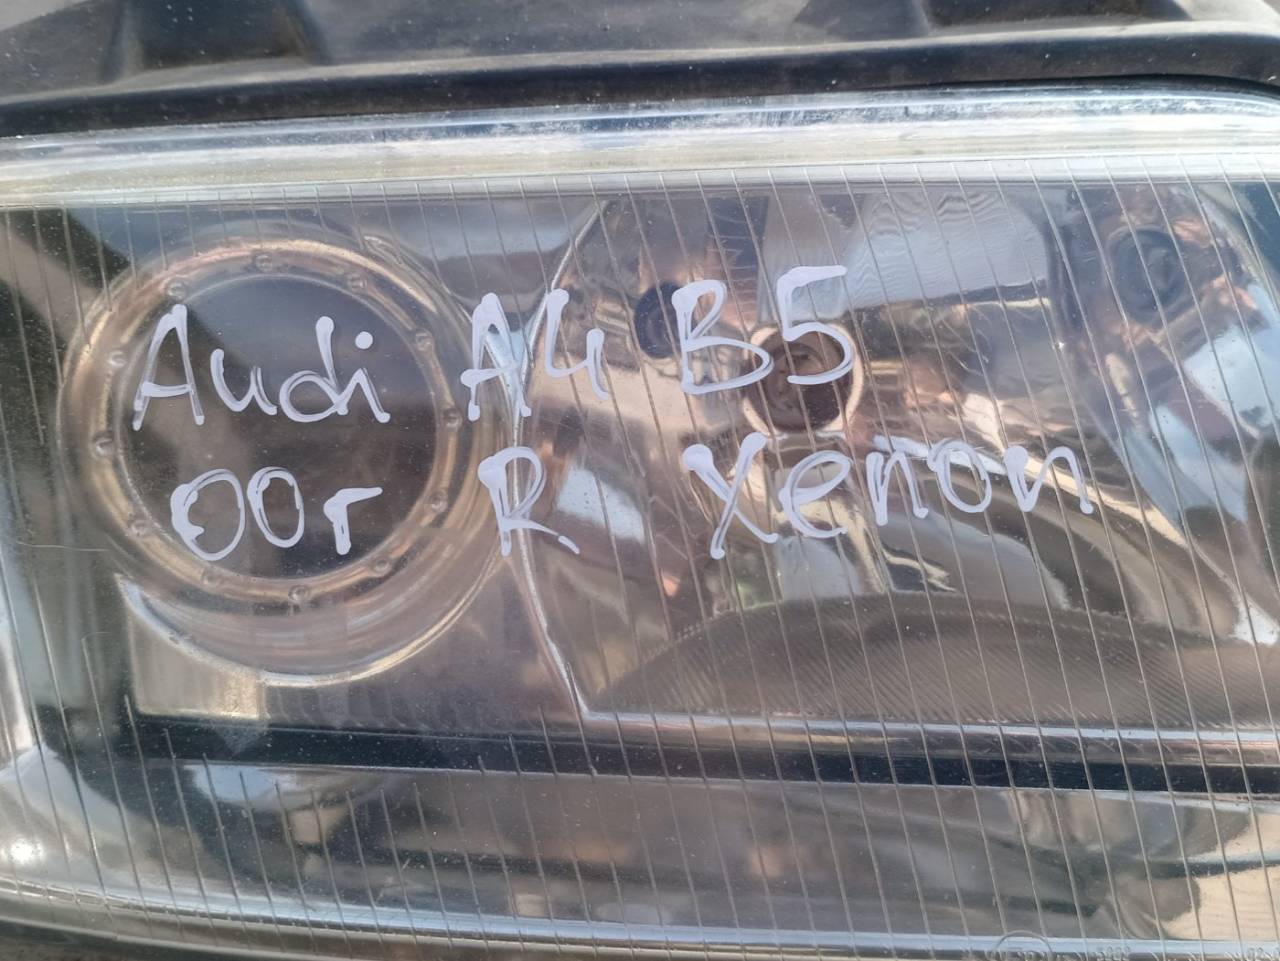 Audi A4 B5
00г R Xenon